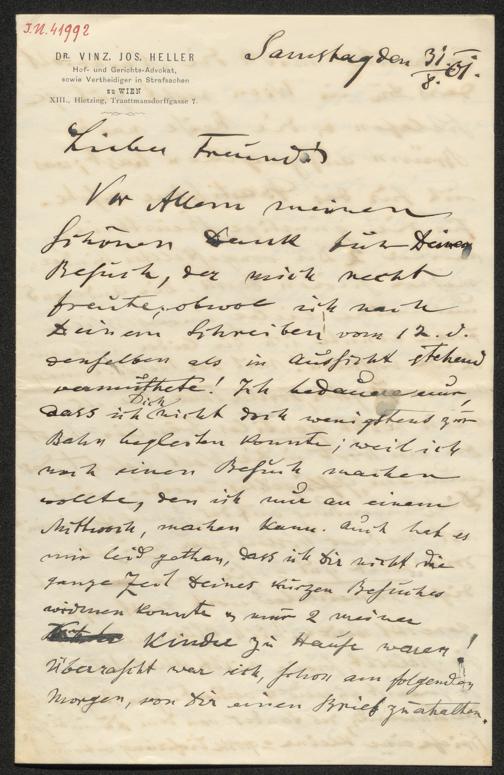 J.N. 41992
DR. VINZ. JOS. HELLER
Hof- und Gerichts-Advokat,
sowie Vertheidiger in Strafsachen
zu WIEN
XIII., Hietzing, Trauttmansdorffgasse 7.
Samstag den 31/8. 01.
Lieber Freund!
Vor Allem meinen
schönen Dank für Deinen
Besuch, der mich recht
freute, obwol ich nach
Deinem Schreiben vom 12. d.
denselben als in Aussicht stehend
vermuthete! Ich bedauere nur,
dass ich Dich nicht doch wenigstens zur
Bahn begleiten konnte; weil ich
noch einen Besuch machen
wollte, den ich nur an einem
Mittwoch, machen kann. Auch hat es
mir leid gethan, dass ich Dir nicht die
ganze Zeit Deines kurzen Besuches
widmen konnte u nur 2 meiner
Kinder zu Hause waren!
Überrascht war ich, schon am folgenden
Morgen, von Dir einen Brief zu erhalten.